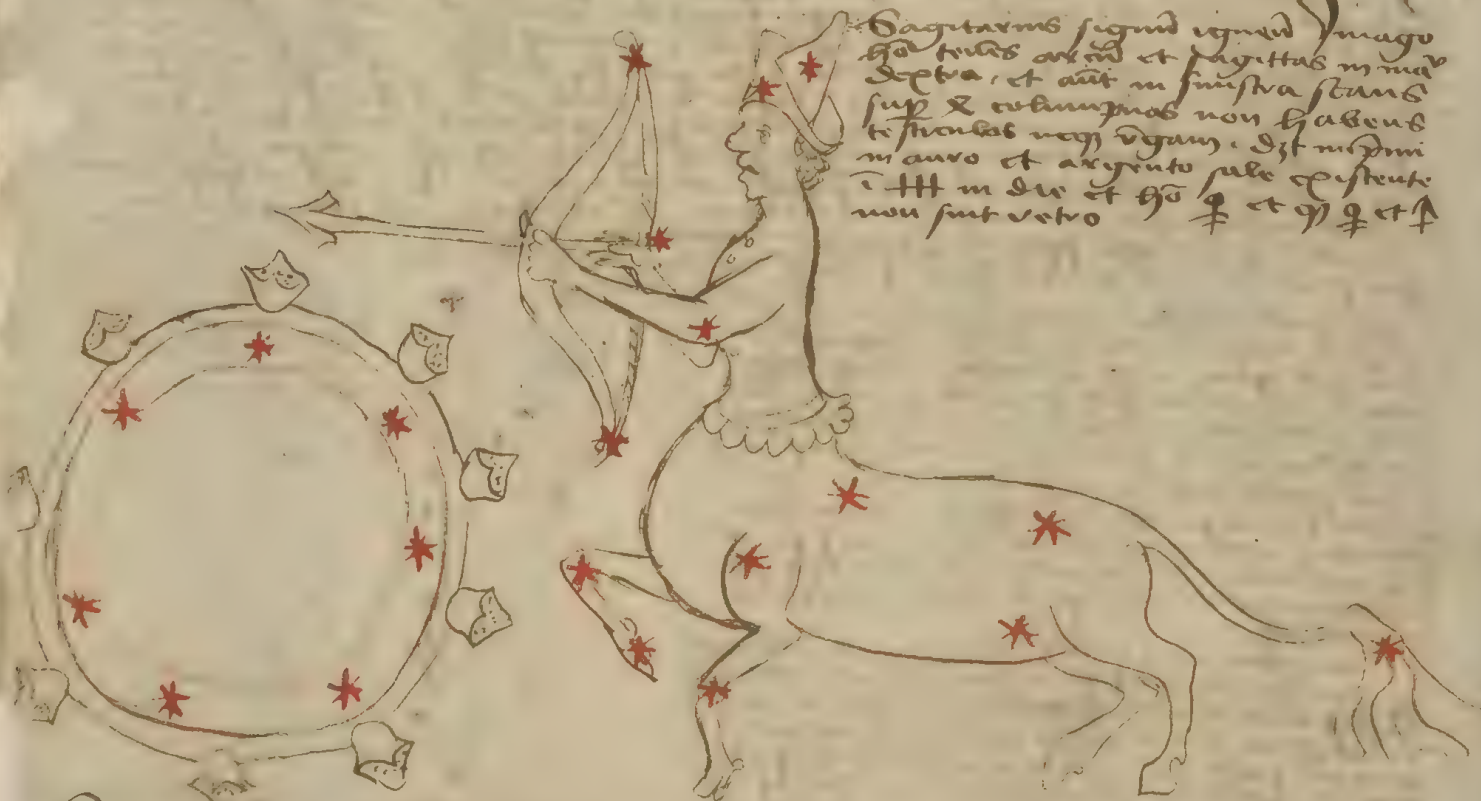 Sagitarius signū igneū ymago
hōis tenēs arcū et sagittas in manu
dextra. et aūt in sinistra stans
sup columpnas non habens
testiculos neqʒ v̄gam. dʒt inp̄mi
in auro et argento sole existente
ī in die et ho et et
non sint retro